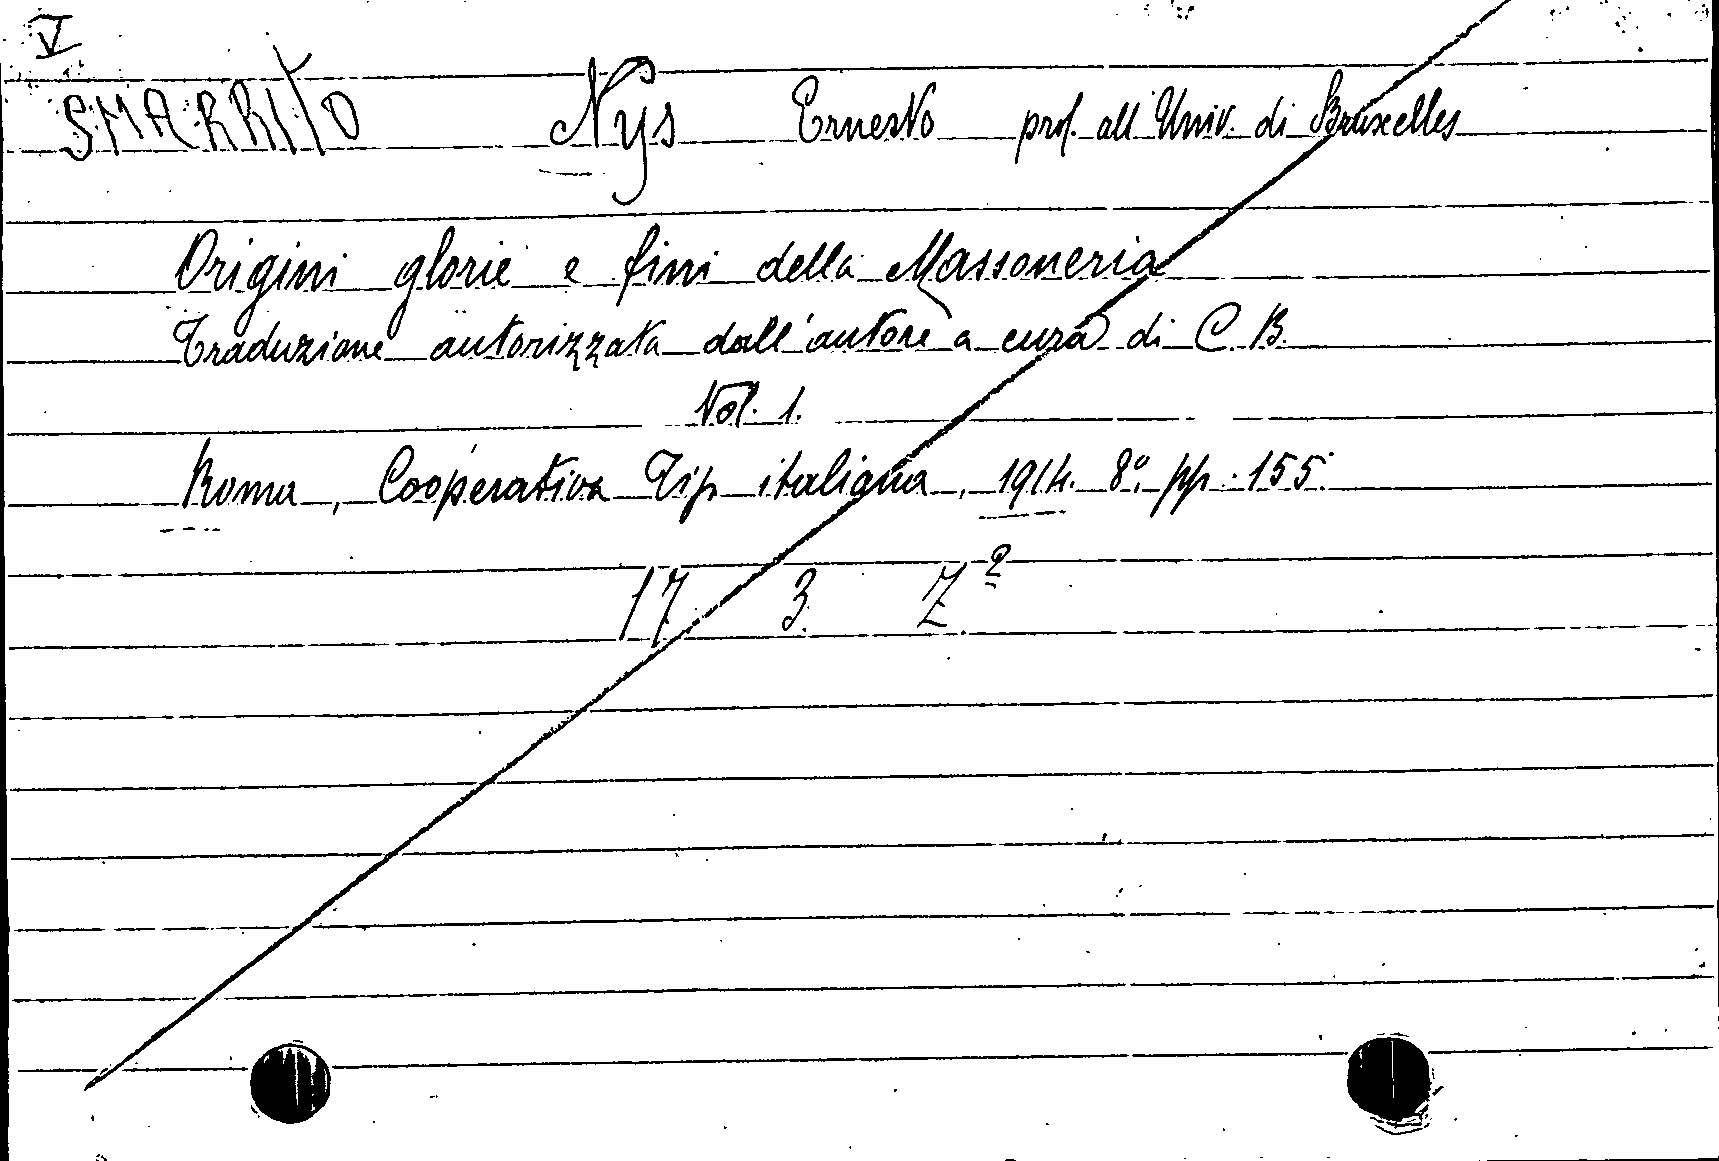 V
SMARRITO Nys Ernesto prof. all' Univ. di Bruxelles
Origini glorie e fini della Massoneria
Traduzione autorizzata dall'autore a cura di C. B.
Vol. 1.
Roma, Cooperativa Tip. italiana, 1914. 8°. pp. 155.
17 3 Z²